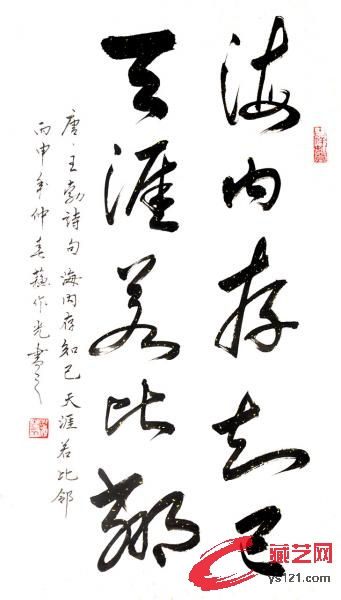 海内存知己
天涯若比邻
唐·王勃詩句 海内存知己 天涯若比邻
丙申年仲春蘇作光書之
藏艺网
ys121.com